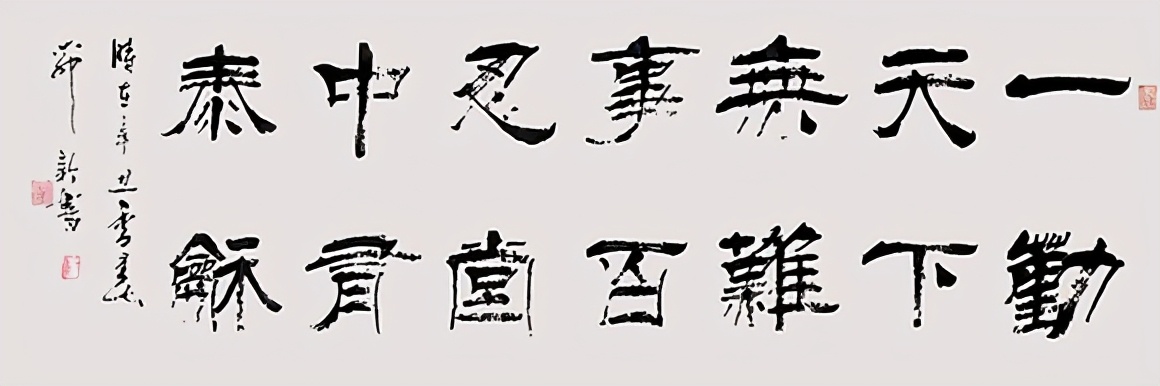 一勤
天下
無難
事百
忍堂
中有
泰龢
時在辛丑
新書